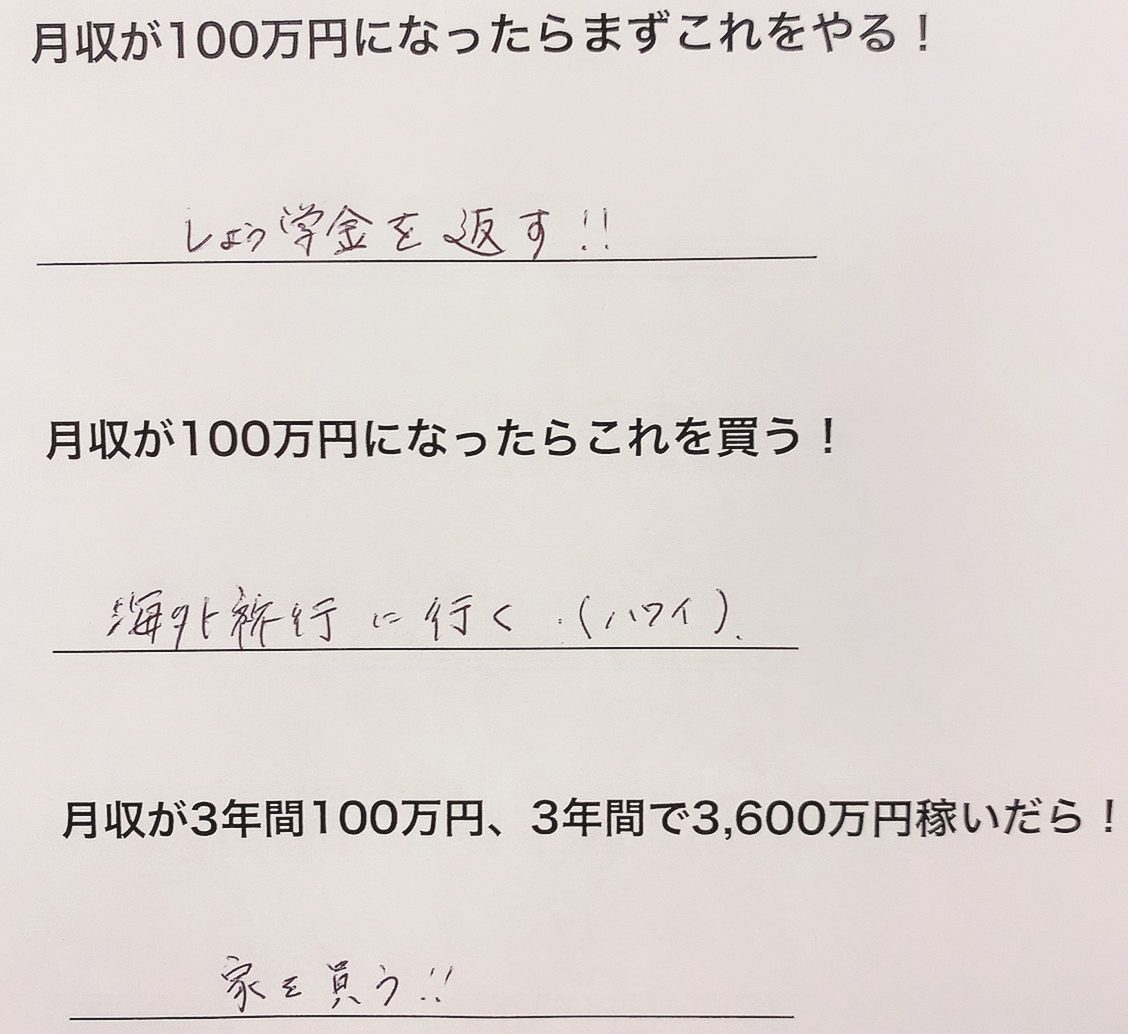 月収が100万円になったらまずこれをやる！
しょう学金を返す!!
月収が100万円になったらこれを買う！
海外旅行に行く.(ハワイ).
月収が3年間100万円、3年間で3,600万円稼いだら！
家を買う!!